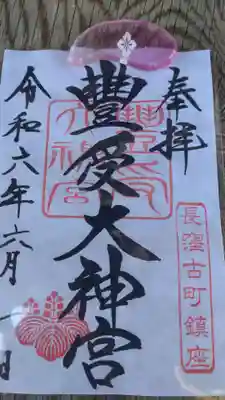 奉拝
豊受大神宮
長窪古町鎮座
令和六年六月
日